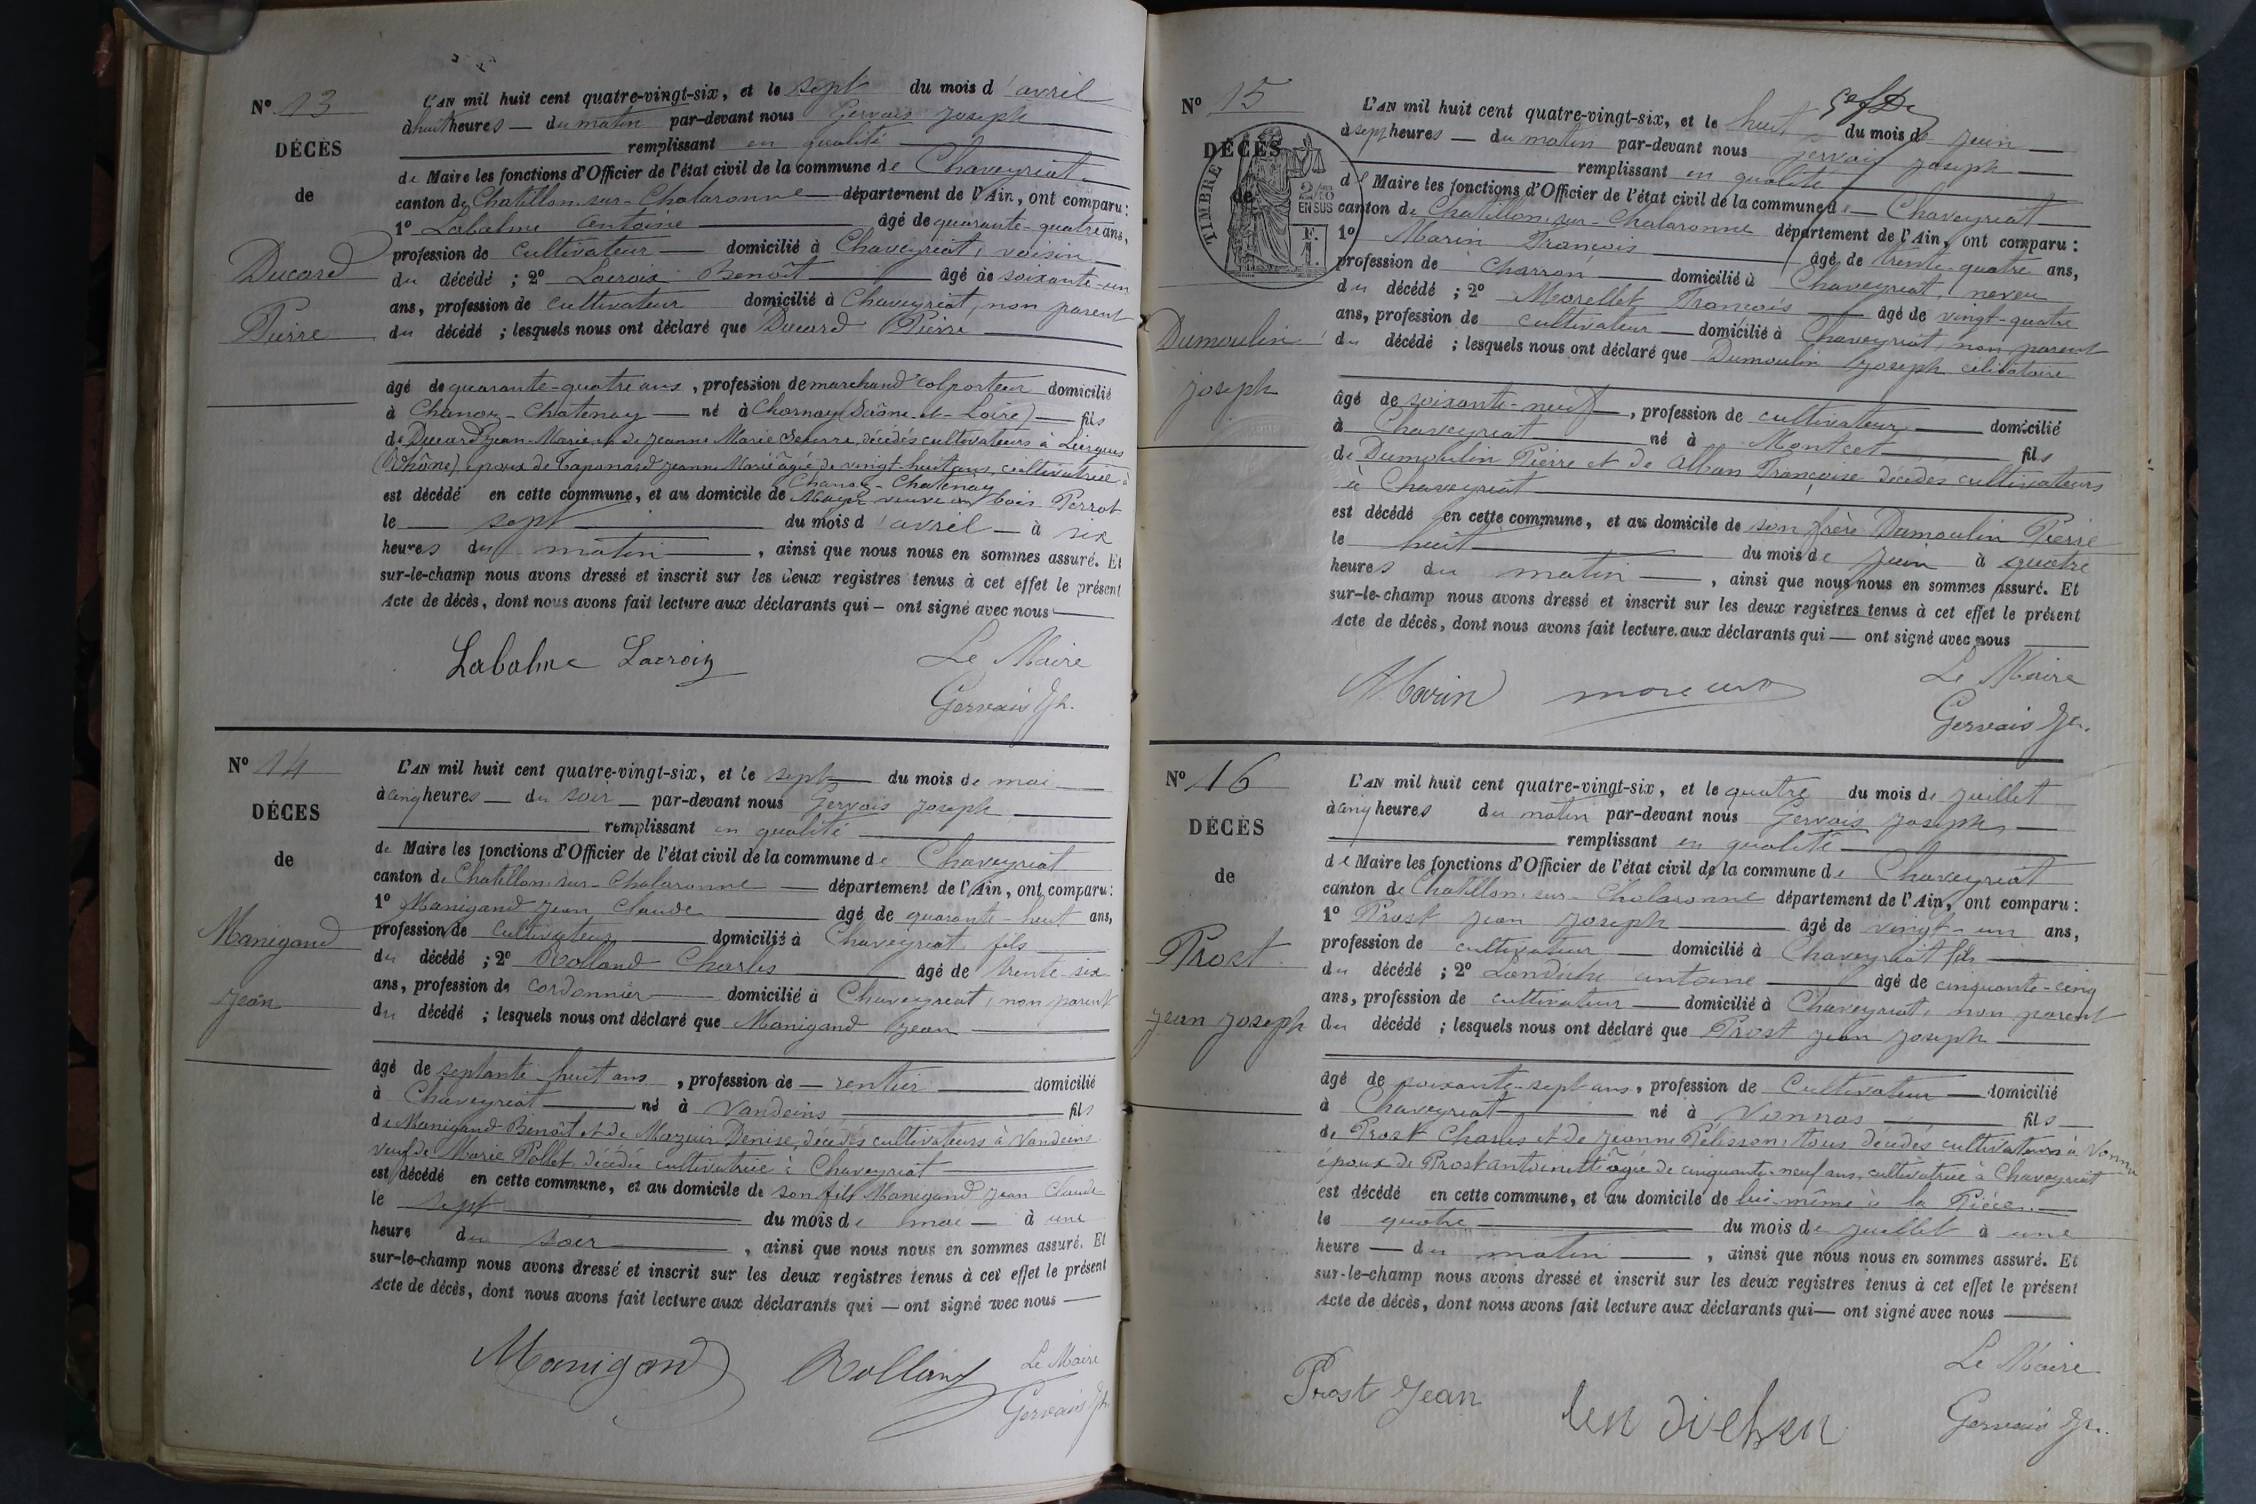 N° 13
DÉCÈS
de
Ducard
Pierre
L'AN mil huit cent quatre-vingt-six, et le sept du mois d'avril
à huit heures — du matin par-devant nous Gervais Joseph
remplissant en qualité
de Maire les fonctions d'Officier de l'état civil de la commune de Chaveyriat
canton de Chatillon-sur-Chalaronne département de l'Ain, ont comparu :
1° Labalme Antoine âgé de quarante-quatre ans,
profession de cultivateur domicilié à Chaveyriat, voisin
du décédé ; 2° Lacroix Benoît âgé de soixante-un
ans, profession de cultivateur domicilié à Chaveyriat, non parent
du décédé ; lesquels nous ont déclaré que Ducard Pierre
âgé de quarante-quatre ans, profession de marchand colporteur domicilié
à Chanoz-Chatenay né à Chornay (Saône-et-Loire) fils
de Ducard Jean-Marie et de Jeanne Marie décédés cultivateurs à
(Rhône), époux de Taponard Jeanne Marie âgée de vingt-huit ans, cultivatrice à
Chanoz-Chatenay
est décédé en cette commune, et au domicile de Moyer veuve au bois Perrot
le sept du mois d'avril à six
heures du matin, ainsi que nous nous en sommes assuré. Et
sur-le-champ nous avons dressé et inscrit sur les deux registres tenus à cet effet le présent
Acte de décès, dont nous avons fait lecture aux déclarants qui — ont signé avec nous
Labalme Lacroix Le Maire
Gervais Jh.
N° 14
DÉCES
de
Manigand
Jean
L'AN mil huit cent quatre-vingt-six, et le sept du mois de mai
à cinq heures — du soir — par-devant nous Gervais Joseph
remplissant en qualité
de Maire les fonctions d'Officier de l'état civil de la commune de Chaveyriat
canton de Chatillon-sur-Chalaronne — département de l'Ain, ont comparu :
1° Manigand Jean Claude âgé de quarante-huit ans,
profession de cultivateur domicilié à Chaveyriat, fils
du décédé ; 2° Rolland Charles âgé de trente-six
ans, profession de cordonnier domicilié à Chaveyriat, non parent
du décédé ; lesquels nous ont déclaré que Manigand Jean
âgé de septante huit ans, profession de — rentier domicilié
à Chaveyriat né à Vandeins fils
de Manigand Benoît et de Mazuir Denise, décédés cultivateurs à Vandeins
veuf de Marie Pollet, décédée cultivatrice à Chaveyriat
est décédé en cette commune, et au domicile de son fils Manigand Jean Claude
le sept du mois de mai — à une
heure du soir, ainsi que nous nous en sommes assuré. Et
sur-le-champ nous avons dressé et inscrit sur les deux registres tenus à cet effet le présent
Acte de décès, dont nous avons fait lecture aux déclarants qui — ont signé avec nous
Manigand Rolland Le Maire
Gervais Jh.
N° 15
DÉCÈS
de
TIMBRE
2/10 EN SUS
Dumoulin
Joseph
L'AN mil huit cent quatre-vingt-six, et le huit du mois de juin
à sept heures — du matin par-devant nous Gervais Joseph
remplissant en qualité
de Maire les fonctions d'Officier de l'état civil de la commune de — Chaveyriat
canton de Chatillon-sur-Chalaronne département de l'Ain, ont comparu :
1° Marin François âgé de trente-quatre ans,
profession de charron domicilié à Chaveyriat, neveu
du décédé ; 2° Morellet François âgé de vingt-quatre
ans, profession de cultivateur domicilié à Chaveyriat, non parent
du décédé ; lesquels nous ont déclaré que Dumoulin Joseph célibataire
âgé de soixante-neuf, profession de cultivateur domicilié
à Chaveyriat né à Montcet fils
de Dumoulin Pierre et de Alban Françoise décédés cultivateurs
à Chaveyriat
est décédé en cette commune, et au domicile de son frère Dumoulin Pierre
le huit du mois de juin à quatre
heures du matin, ainsi que nous nous en sommes assuré. Et
sur-le-champ nous avons dressé et inscrit sur les deux registres tenus à cet effet le présent
Acte de décès, dont nous avons fait lecture aux déclarants qui — ont signé avec nous
Marin Le Maire
Gervais Jh.
N° 16
DÉCÈS
de
Prost
Jean Joseph
L'AN mil huit cent quatre-vingt-six, et le quatre du mois de juillet
à cinq heures du matin par-devant nous Gervais Joseph
remplissant en qualité
de Maire les fonctions d'Officier de l'état civil de la commune de Chaveyriat
canton de Chatillon-sur-Chalaronne département de l'Ain, ont comparu :
1° Prost Jean Joseph âgé de vingt-un ans,
profession de cultivateur domicilié à Chaveyriat fils
du décédé ; 2° antoine âgé de cinquante-cinq
ans, profession de cultivateur domicilié à Chaveyriat, non parent
du décédé ; lesquels nous ont déclaré que Prost Jean Joseph
âgé de soixante-sept ans, profession de Cultivateur — domicilié
à Chaveyriat né à Vonnas fils
de Prost Charles et de Jeanne Pélisson tous décédés cultivateurs à Vonnas
époux de Prost Antoinette âgée de cinquante-neuf ans, cultivatrice à Chaveyriat
est décédé en cette commune, et au domicile de lui-même à la
le quatre du mois de juillet à une
heure — du matin, ainsi que nous nous en sommes assuré. Et
sur-le-champ nous avons dressé et inscrit sur les deux registres tenus à cet effet le présent
Acte de décès, dont nous avons fait lecture aux déclarants qui — ont signé avec nous
Prost Jean Le Maire
Gervais Jh.